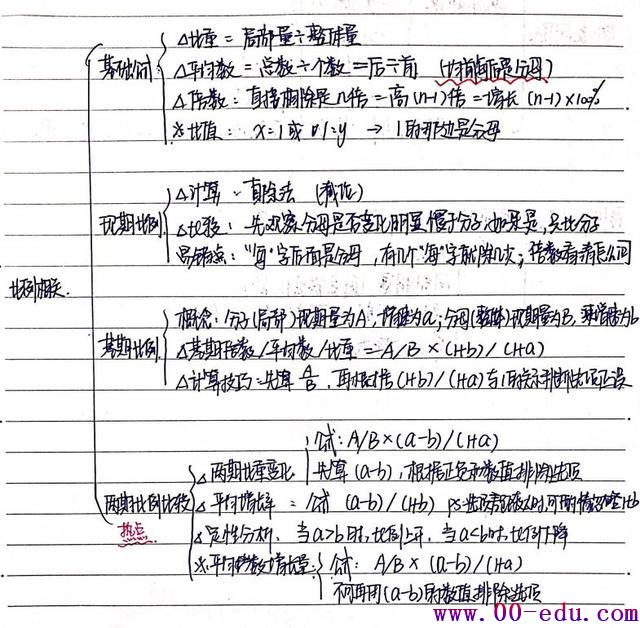 △比重 = 局部量÷整体量
基础知识 △平均数 = 总数÷个数 = 后÷前 (均前面是分母)
△倍数：直接相除是几倍 = 高(n-1)倍 = 增长(n-1)×100%
※比值：x:1或1:y → 1的那边是分母
△计算：直除法 (截位)
现期比例 △比较：先观察分母是否变化明显慢于分子，如果是，只比分子
易错点："每"字后面是分母，有几个"每"字就除几次；倍数看清是公司
比例相关
概念：分子(局部)现期量为A，增速为a；分母(整体)现期量为B，增速为b
基期比例 △基期倍数/平均数/比重 = A/B × (1+b)/(1+a)
△计算技巧：先算 A/B，再根据(1+b)/(1+a)与1的关系判断选项正误
公式：A/B×(a-b)/(1+a)
△两期比重变化 先算(a-b)，根据正负和数值排除选项
两期比例比较 △平均增长率 = 公式 (a-b)/(1+b) ps:选项差距较大时,可酌情忽略1+b
热点 △定性分析：当a>b时，比例上升，当a<b时，比例下降
※平均数增长量：公式：A/B × (a-b)/(1+a)
不可再用(a-b)的数值排除选项
www.00-edu.com